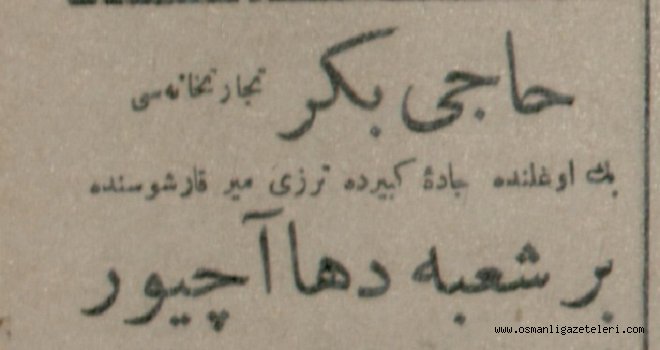 حاجی بكر تجارتخانه‌سی
بك اوغلنده جادۀ كبیرده ترزی میر قارشوسنده
بر شعبه دها آچیور
www.osmanligazeteleri.com